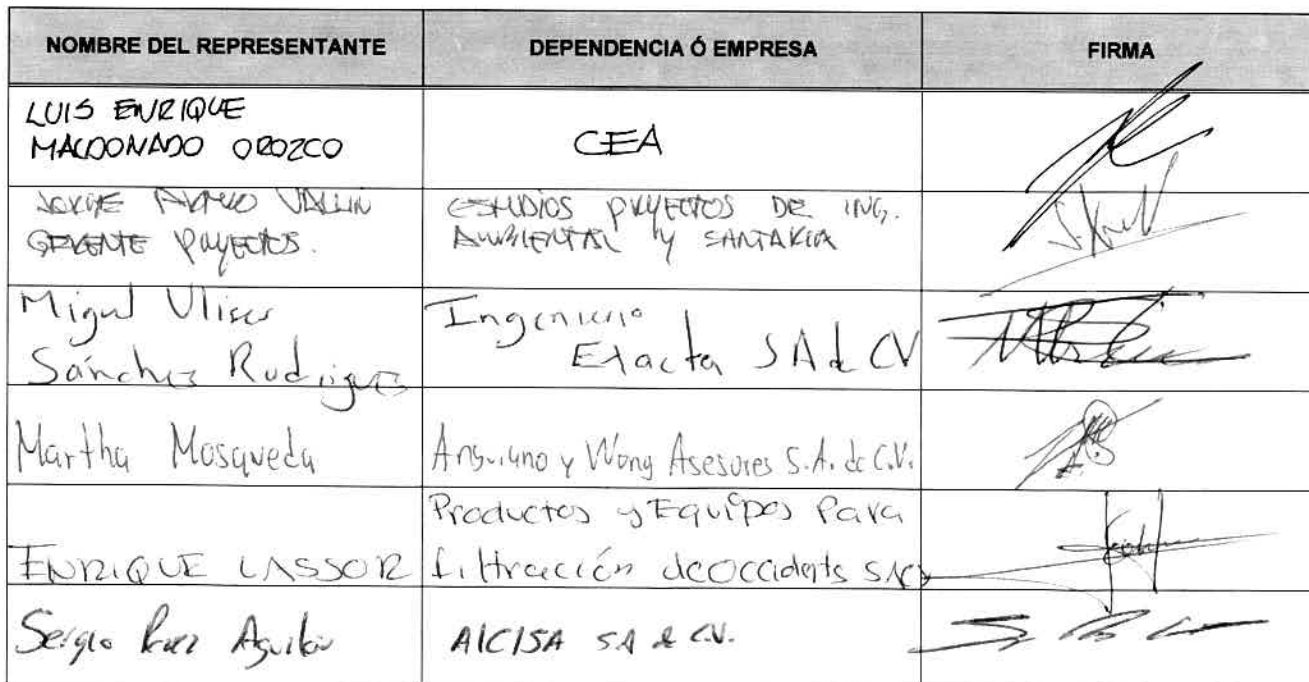 NOMBRE DEL REPRESENTANTE
DEPENDENCIA Ó EMPRESA
FIRMA
LUIS ENRIQUE
MALDONADO OROZCO
CEA
JORGE VALLIN
GERENTE PROYECTOS.
ESTUDIOS PROYECTOS DE ING.
AMBIENTAL Y SANITARIA
Miguel Ulises
Sánchez Rodriguez
Ingenieria
Exacta SA de CV
Martha Mosqueda
Anguiano y Wong Asesores S.A. de C.V.
ENRIQUE LASSOR
Productos y Equipos Para
filtración de occidente
Sergio Aguilar
AICISA S.A de C.V.